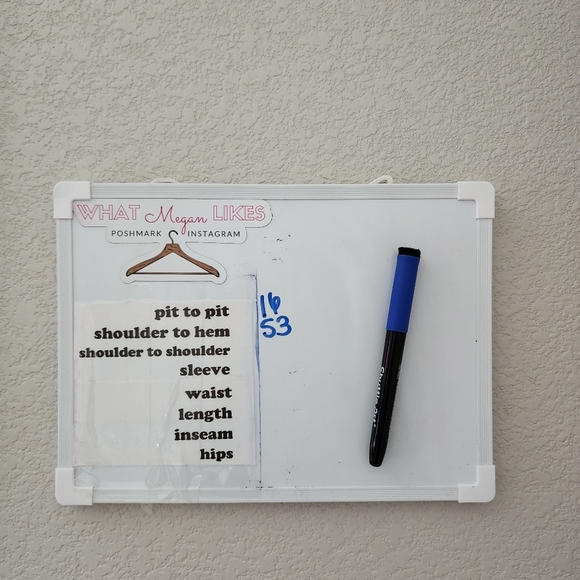 WHAT Megan LIKES
POSHMARK INSTAGRAM
pit to pit 16
shoulder to hem 53
shoulder to shoulder
sleeve
waist
length
inseam
hips